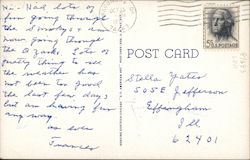 Hi - Had lots of
fun going through
the Smokys + are
now going through
the Ozarks. Lots of
pretty thing to see
the weather has
not been too good
the last few days,
but am having fun
any way.
Frances
POST CARD
5¢ U.S. POSTAGE
Stella Yates
505 E Jefferson
Effingham
Ill
62401